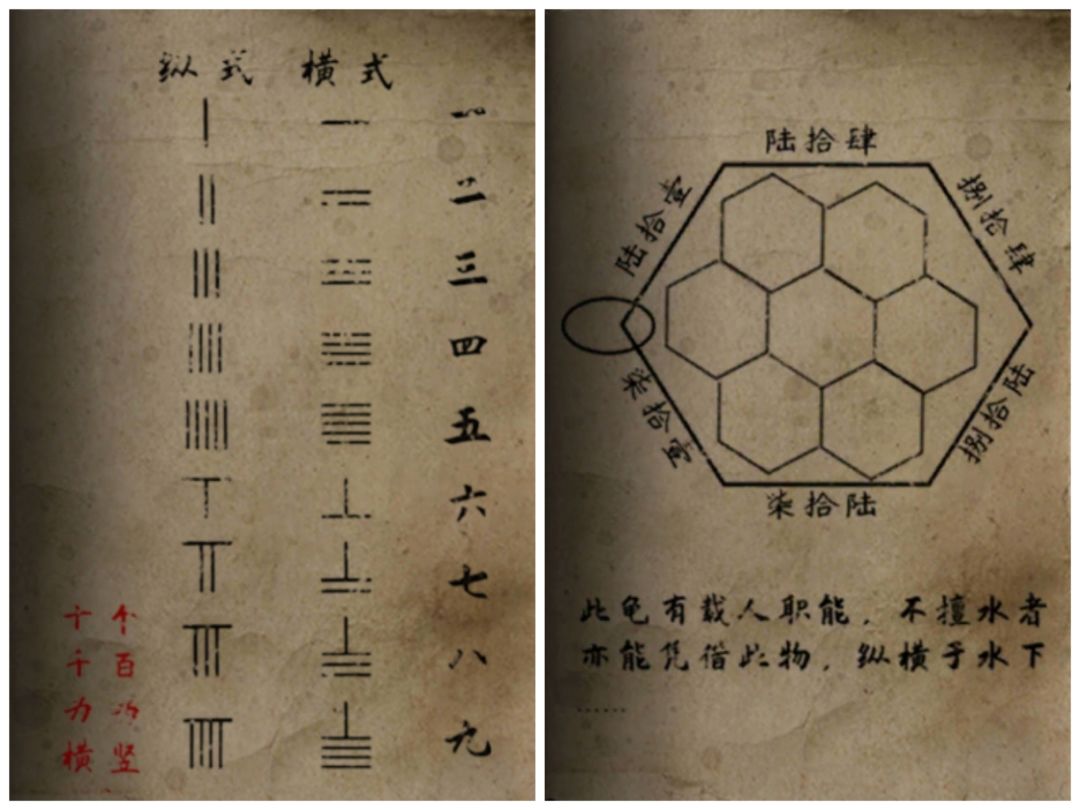 纵式 横式
一
二
三
四
五
六
七
八
九
个百为竖
十千为横
陆拾肆
捌拾肆
陆拾壹
柒拾壹
捌拾陆
柒拾陆
此龟有载人职能，不擅水者
亦能凭借此物，纵横于水下
……